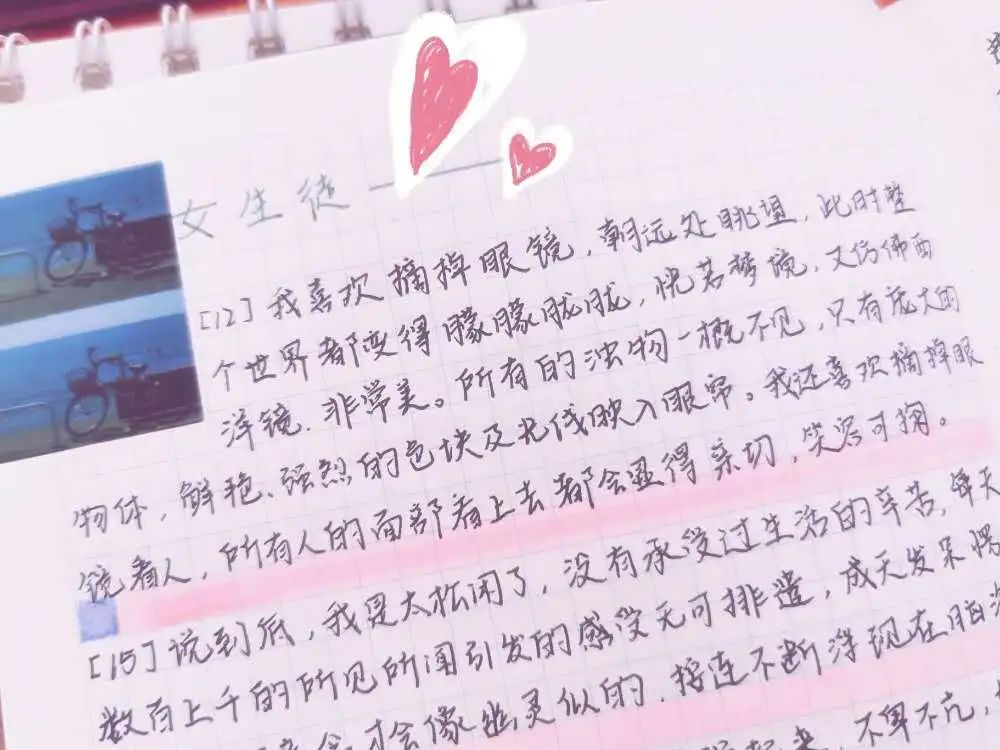 女生徒
[12]我喜欢摘掉眼镜，朝远处眺望，此时整
个世界都变得朦朦胧胧，恍若梦境，又仿佛西
洋镜，非常美。所有的浊物一概不见，只有庞大的
物体，鲜艳、强烈的色块及光线映入眼帘。我还喜欢摘掉眼
镜看人，所有人的面部看上去都会显得亲切，笑容可掬。
[15]说到底，我是太松闲了，没有承受过生活的辛苦，每天
数百上千的所见所闻引发的感受无可排遣，成天发呆
才会像幽灵似的，接连不断浮现在脑
起来，不卑不亢，